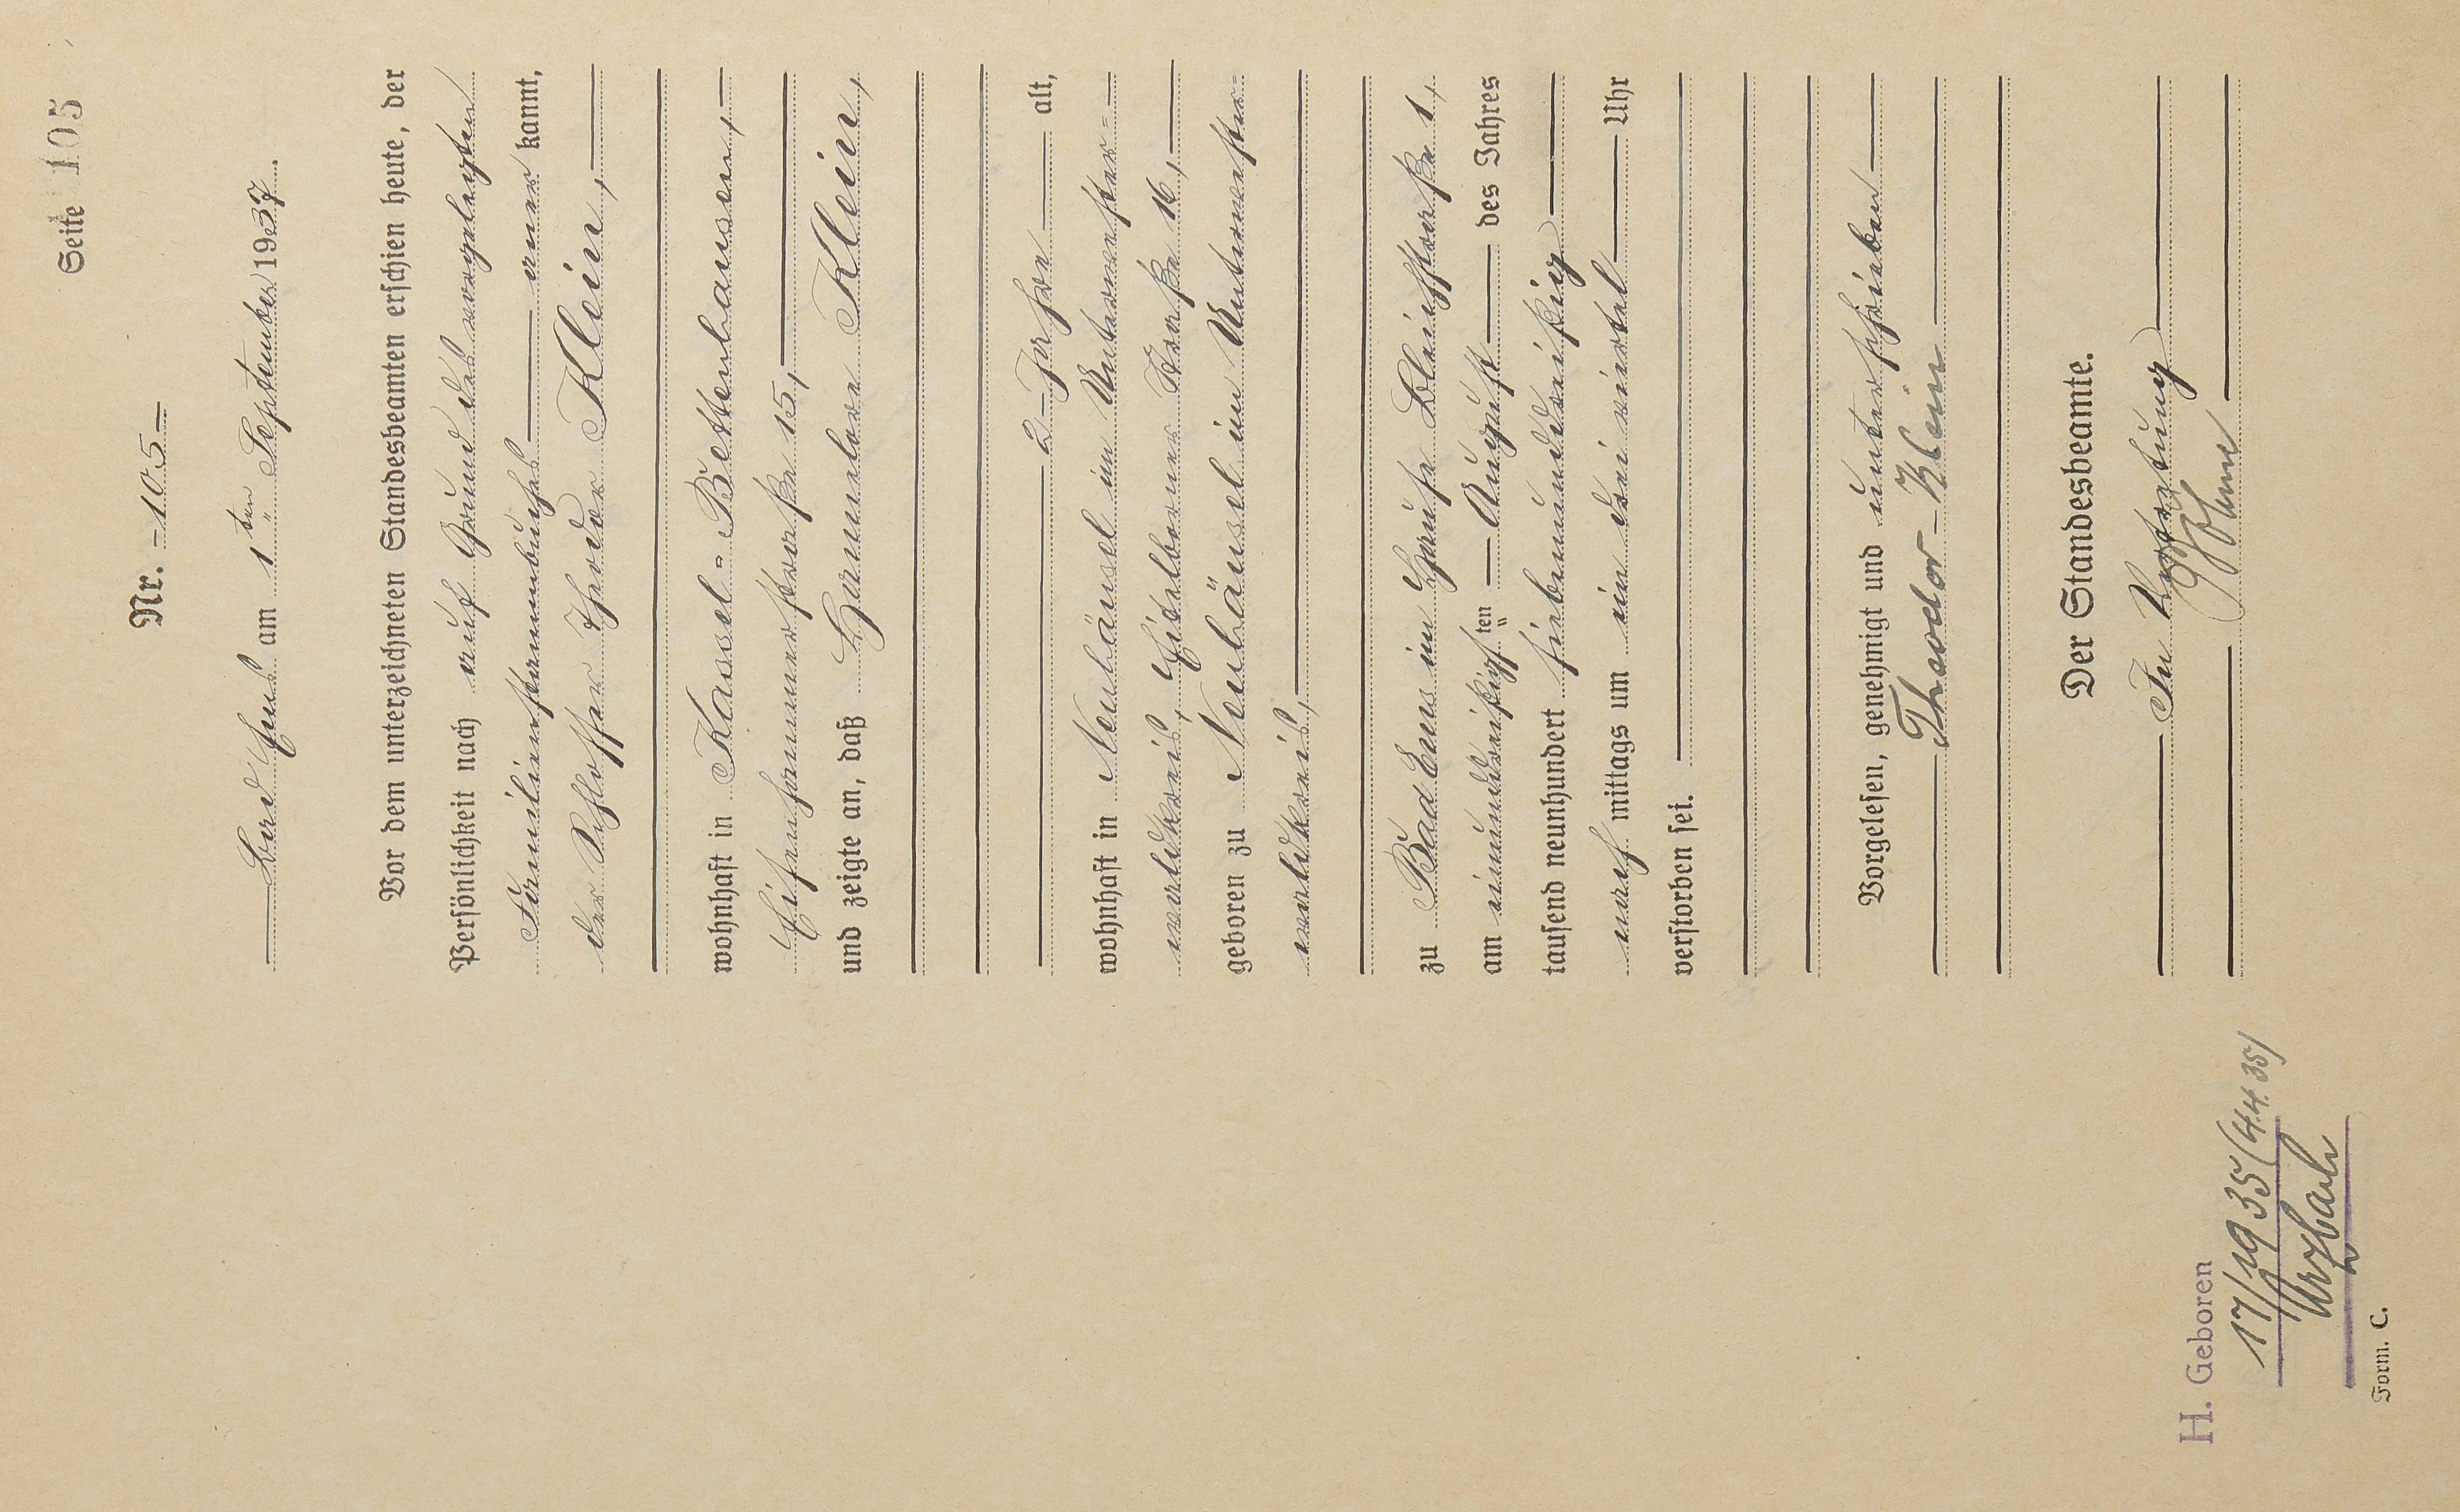 Seite 105
Nr. = 105 =
Bad Ems am 1ten September 1937.
Vor dem unterzeichneten Standesbeamten erschien heute, der
Persönlichkeit nach auf Grund des vorgelegten
Familienstammbuches aner kannt,
der Schlosser Theodor Klein,
wohnhaft in Kassel = Bettenhausen,
Eisenhammerstraße 15,
und zeigte an, daß Hannelore Klein,
2 Jahre alt,
wohnhaft in Neuhäusel im Unterwester=
waldkreis, Eitelborner Straße 16,
geboren zu Neuhäusel im Unterwester=
waldkreis,
zu Bad Ems im Hause Bleichstraße 1,
am einunddreißigsten August des Jahres
tausend neunhundert siebenunddreißig
nach mittags um ein dreiviertel Uhr
verstorben sei.
Vorgelesen, genehmigt und unterschrieben
Theodor Klein
Der Standesbeamte.
In Vertretung
H. Geboren
17/1935 (4.4.35)
Arzbach
Form. C.